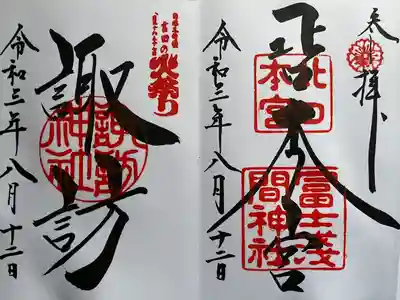 奉拝
北口本宮
北口
本宮
冨士浅
間神社
令和三年八月十二日
吉田の
火祭り
諏訪
諏訪
神社
令和三年八月十二日